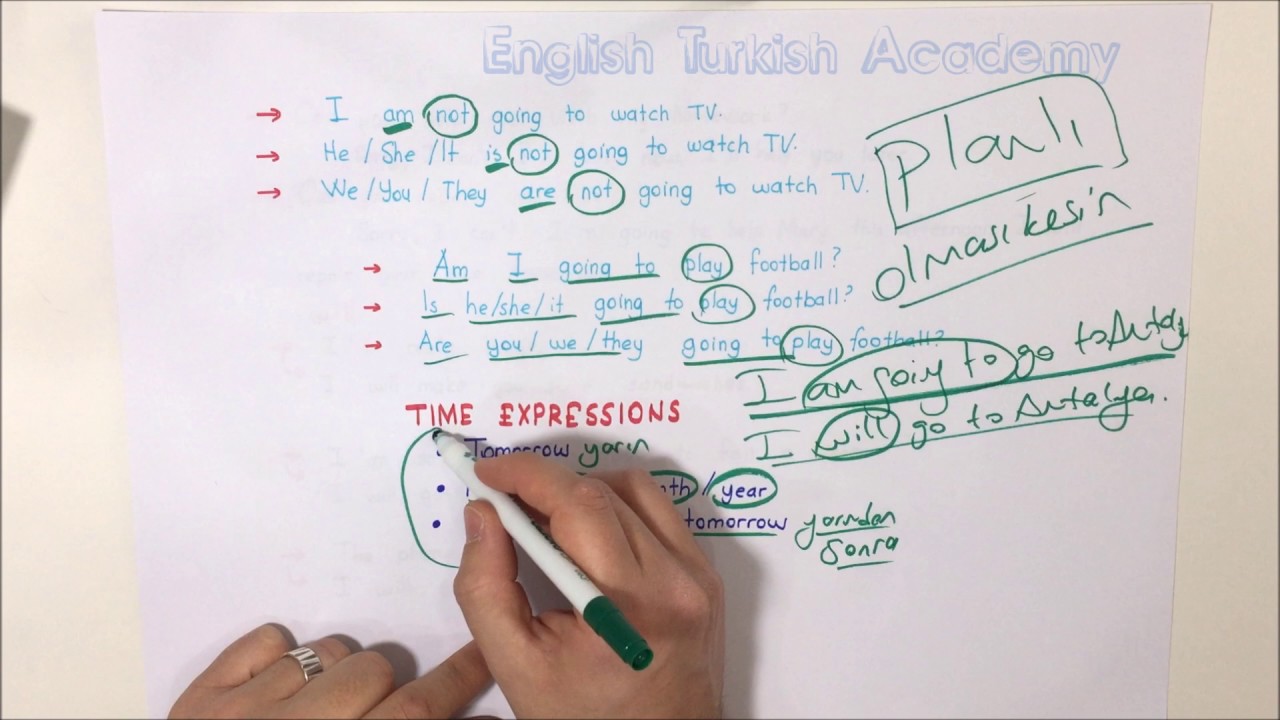 English Turkish Academy
→ I am not going to watch TV.
→ He / She / It is not going to watch TV.
→ We / You / They are not going to watch TV.
planlı
olması kesin
→ Am I going to play football?
→ Is he/she/it going to play football?
→ Are you / we / they going to play football?
I am going to go to Antaly
I will go to Antalya.
TIME EXPRESSIONS
• Tomorrow yarın
• / year
• tomorrow yarından sonra